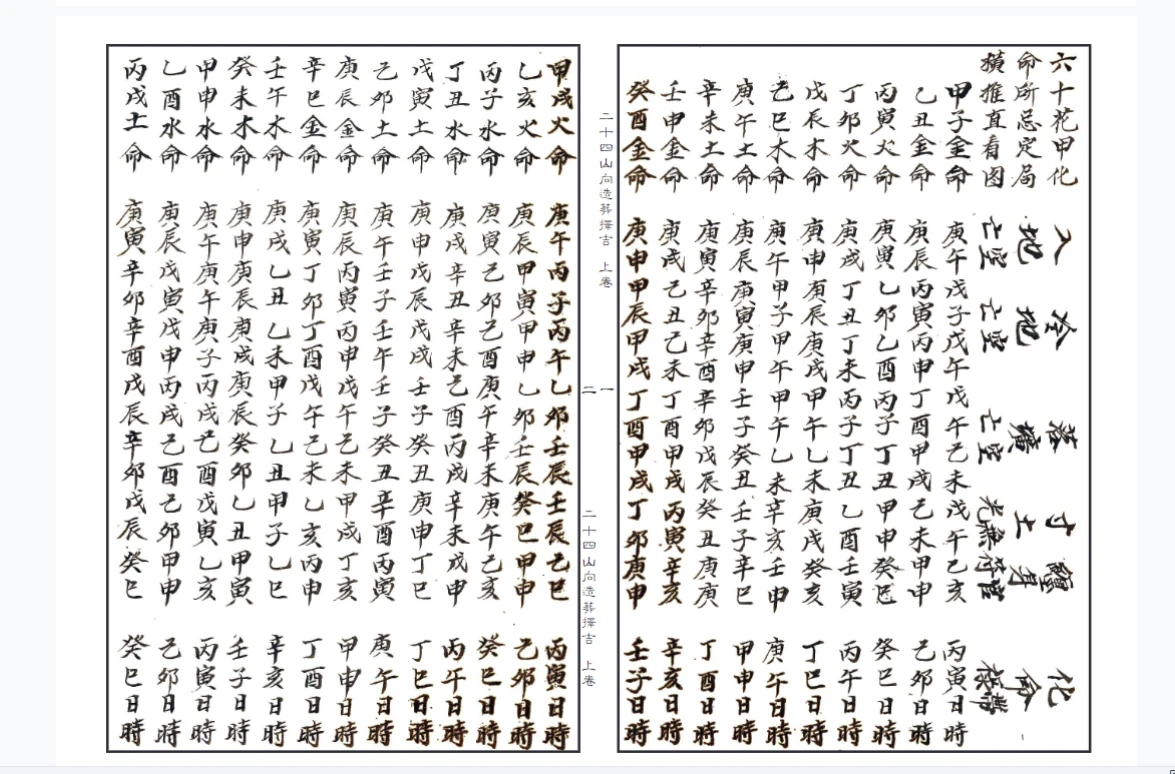 六十花甲化
命所忌定局
橫推直看图
入地亡空
冷地亡空
化命
甲子金命 庚午戊子戊午戊午己未戊午己亥 丙寅日時
乙丑金命 庚辰丙寅丙申丁酉甲戌己未甲申 己卯日時
丙寅火命 庚寅乙卯乙酉丙子丁丑甲申癸巳 癸巳日時
丁卯火命 庚戌丁丑丁未丙子丁丑乙酉壬寅 丙午日時
戊辰木命 庚申庚辰庚戌甲午乙未庚戌癸亥 丁巳日時
己巳木命 庚午甲子甲午甲午乙未辛亥壬申 庚午日時
庚午土命 庚辰庚寅庚申壬子癸丑壬子辛巳 甲申日時
辛未土命 庚寅辛卯辛酉辛卯戊辰癸丑庚庚 丁酉日時
壬申金命 庚戌己丑己未丁酉甲戌丙寅辛亥 辛亥日時
癸酉金命 庚申甲辰甲戌丁酉甲戌丁卯庚申 壬子日時
二十四山向造葬擇吉 上卷 一
二 二十四山向造葬擇吉 上卷
甲戌火命 庚午丙子丙午乙卯壬辰壬辰乙巳 丙寅日時
乙亥火命 庚辰甲寅甲申乙卯壬辰癸巳甲申 己卯日時
丙子水命 庚寅己卯己酉庚午辛未庚午乙亥 癸巳日時
丁丑水命 庚戌辛丑辛未己酉丙戌辛未戊申 丙午日時
戊寅土命 庚申戊辰戊戌壬子癸丑庚申丁巳 丁巳日時
己卯土命 庚午壬子壬午壬子癸丑辛酉丙寅 庚午日時
庚辰金命 庚辰丙寅丙申戊午己未甲戌丁亥 甲申日時
辛巳金命 庚寅丁卯丁酉戊午己未乙亥丙申 丁酉日時
壬午木命 庚戌乙丑乙未甲子乙丑甲子乙巳 辛亥日時
癸未木命 庚申庚辰庚戌庚辰癸卯乙丑甲寅 壬子日時
甲申水命 庚午庚午庚子丙戌己酉戊寅乙亥 丙寅日時
乙酉水命 庚辰戊寅戊申丙戌己酉己卯甲申 己卯日時
丙戌土命 庚寅辛卯辛酉戊辰辛卯戊辰癸巳 癸巳日時